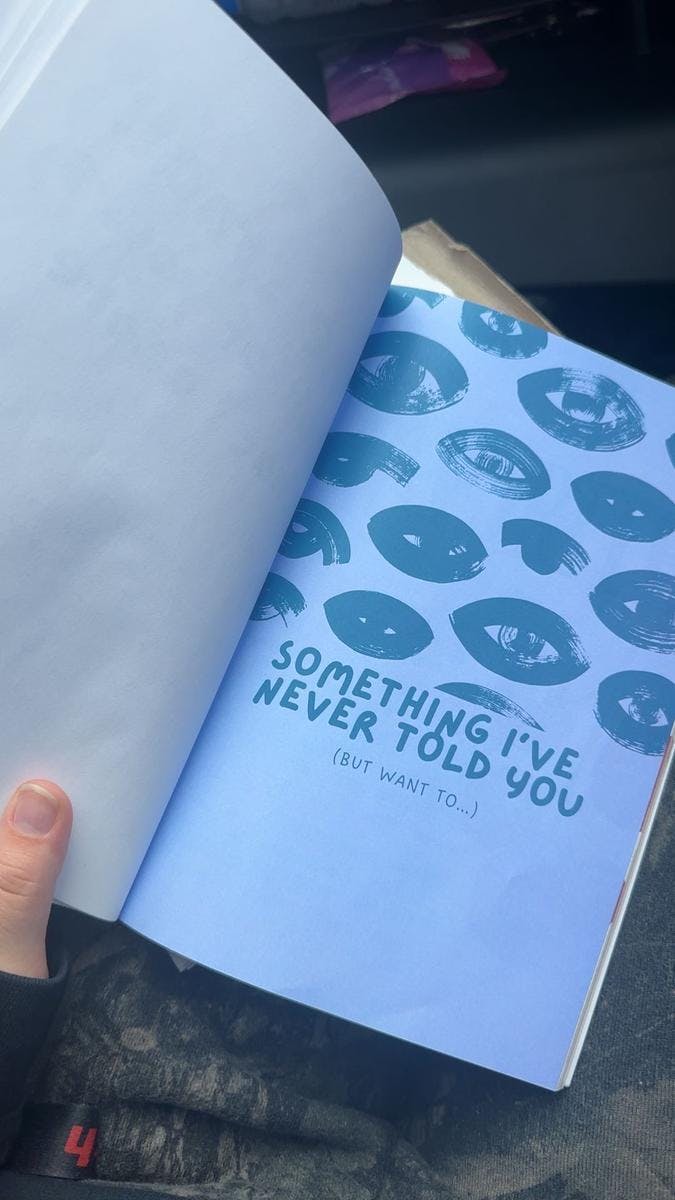 SOMETHING I'VE
NEVER TOLD YOU
(BUT WANT TO...)
4